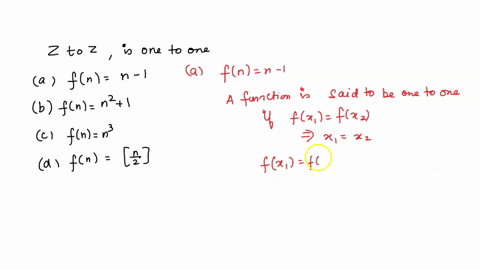 Z to Z, is one to one
(a) f(n) = n-1
(b) f(n) = n²+1
(c) f(n) = n³
(d) f(n) = [n/2]
(a) f(n) = n-1
A function is said to be one to one
if f(x₁) = f(x₂)
⇒ x₁ = x₂
f(x₁) = f(